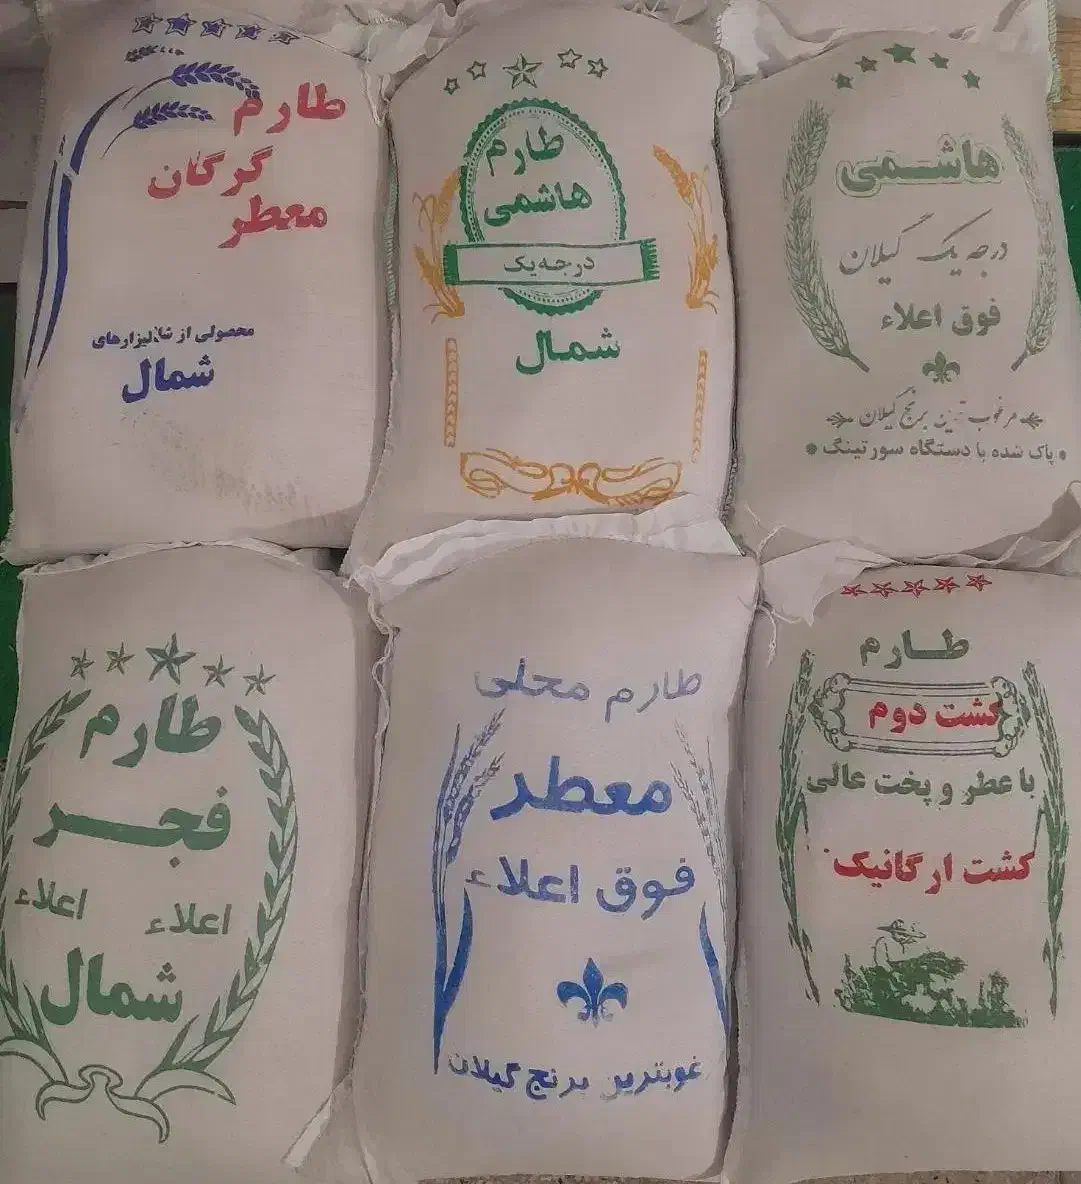 هاشمی
درجه یک گیلان
فوق اعلاء
مرغوب ترین برنج گیلان
پاک شده با دستگاه سورتینگ
طارم
هاشمی
درجه یک
شمال
طارم
گرگان
معطر
محصولی از شالیزارهای
شمال
طارم
کشت دوم
با عطر و پخت عالی
کشت ارگانیک
طارم محلی
معطر
فوق اعلاء
غوبترین برنج گیلان
طارم
فجر
اعلاء اعلاء
شمال